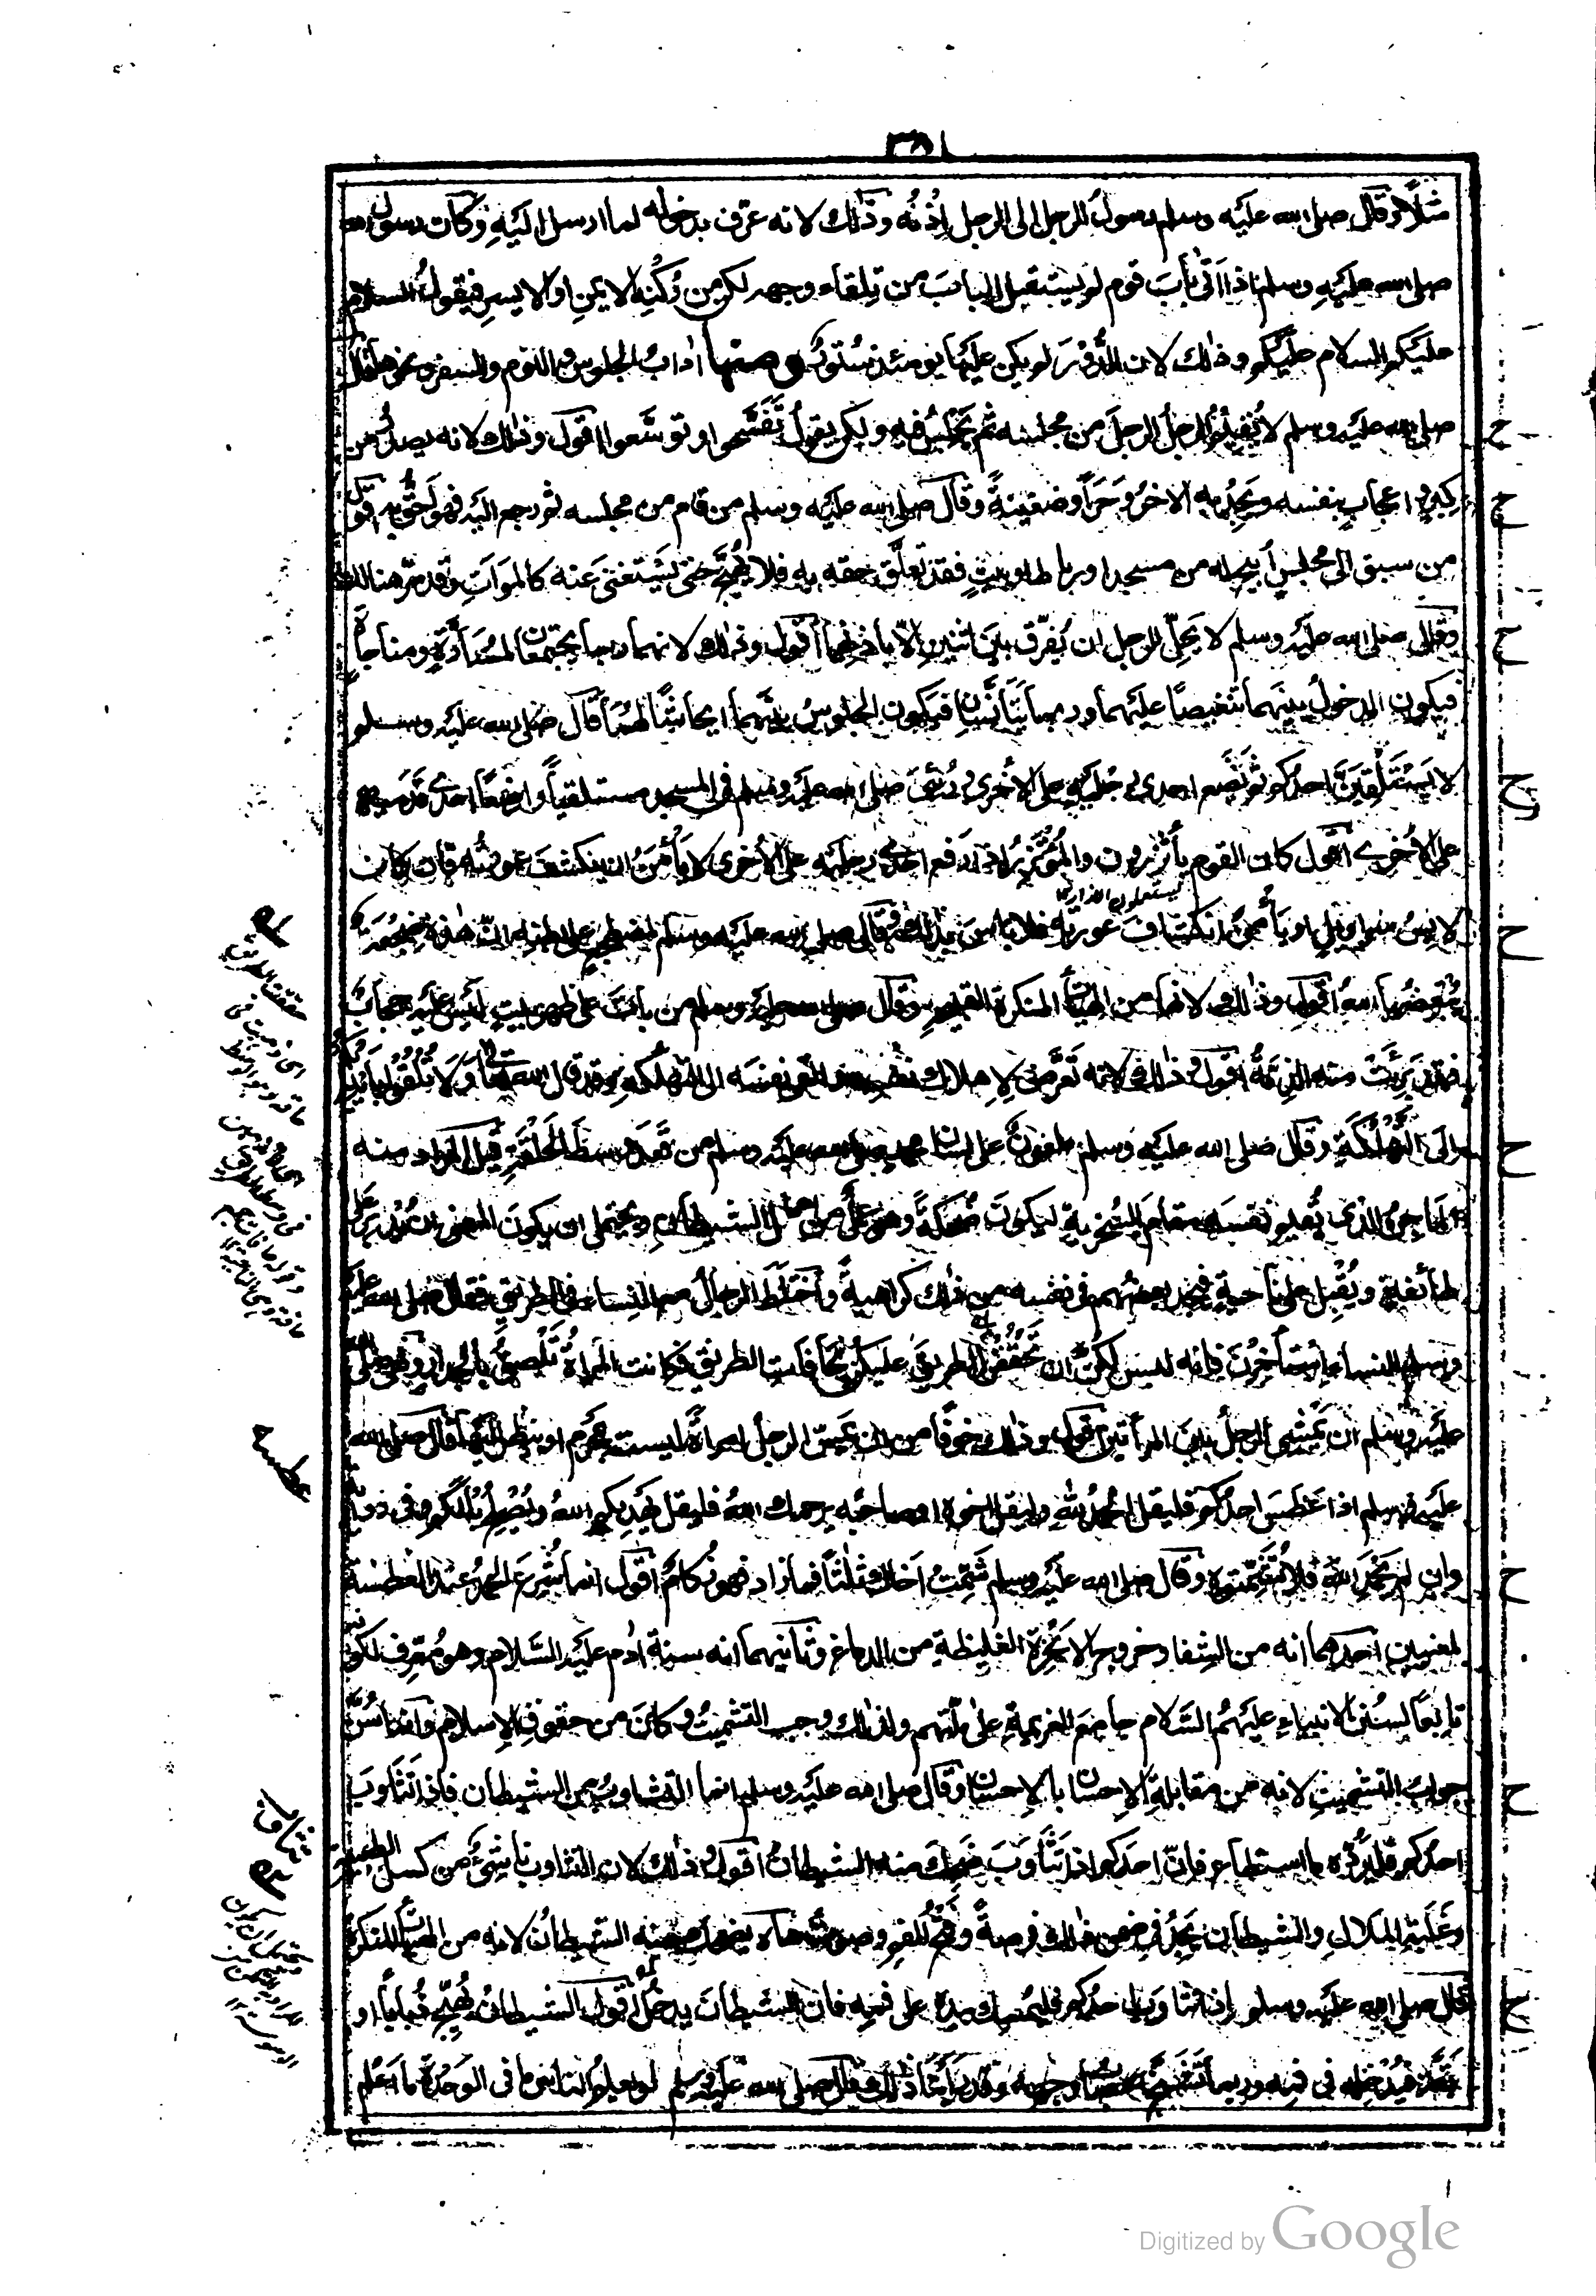 ٣٥١
مثلًا وقال صلى الله عليه وسلم رسول الرجل الى الرجل اِذْنُه وذلك لانه عرف بدخوله لما ارسل اليه وكان رسول الله
صلى الله عليه وسلم اذا اتى باب قوم لم يستقبل الباب من تلقاء وجهه لكن من رُكْنِه الايمن او الايسر فيقول السلام
عليكم السلام عليكم وذلك لان الدُّوْر لم يكن عليها يومئذ سُتور ومنها اداب الجلوس والنوم والسفر ونحوها قال
صلى الله عليه وسلم لا يُقِيْمُ الرجل الرجل من مجلسه ثم يَجْلِسُ فيه ولكن يقول تَفَسَّحوا وتوسَّعوا اقول وذلك لانه يصدر من
كبرٍ واعجابٍ بنفسه ويَجِدُ به الاخر وَحَرًا وضغينةً وقال صلى الله عليه وسلم من قام من مجلسه ثم رجع اليه فهو احق به اقول
من سبق الى مجلس أُبيح له من مسجد او رباط او بيتٍ فقد تعلَّق حقه به فلا يُهَيَّج حتى يَسْتغنى عنه كالموات وقد مر هنالك
وقال صلى الله عليه وسلم لا يحِلّ للرجل ان يُفرّق بين اثنين الّا باذنهما اقول وذلك لانهما ربما يجتمعان لمُسَارَّةٍ ومناجاةٍ
فيكون الدخول بينهما تنغيصًا عليهما وربما يتأنَّسان فيكون الجلوس بينهما ايحاشًا لهما قال صلى الله عليه وسلم
لا يَسْتَلْقِيَنَّ احدكم ثم يَضَع احدى رِجليه على الاخرى ورُئِىَ صلى الله عليه وسلم فى المسجد مستلقيًا واضعًا احدى قدميه
على الاخرى اقول كان القوم يأتزرون والمُؤتَزِر اذا رفع احدى رجليه على الأخرى لا يأمَنُ ان ينكشف عورته فان كان
يستعملون الازار
لابس سراويل او يأمن انكشاف عورته فلا بأس بذلك وقال صلى الله عليه وسلم لمضطجع على بطنه انّ هذه ضجعة
يُبْغِضُها اللهُ اقول وذلك لانها من الهيأت المنكرة القبيحة وقال صلى الله عليه وسلم من بات على ظهر بيتٍ ليس عليه حجاب
فقد بَرِئَت منه الذِمَّةُ اقول وذلك لانه تَعرَّض لاهلاك نفسه والقى نفسَه الى التهلكة وقد قال الله تعالى وَلَا تُلْقُوا بِاَيْدِيْكُمْ
اِلَى التَّهْلُكَةِ وقال صلى الله عليه وسلم ملعونٌ على لسان محمد صلى الله عليه وسلم من قعد وسط الحَلْقَةِ قيل المراد منه
الماجن الذى يُقيم نفسه مقام السُّخرية ليكون ضُحكةً وهو عملٌ من اعمال الشيطان ويحتمل ان يكون المعنى ان يُدبر على
طائفة ويُقبِل على ناحيةٍ فيجد بعضهم فى نفسه من ذلك كراهيةً واختلط الرجال مع النساء فى الطريق فقال صلى الله عليه
وسلم للنساء استأخِرْنَ فانه ليس لكُنَّ ان تَحْقُقْنَ الطريق عليكن بحافات الطريق فكانت المرأة تَلْصَقُ بالجدار ونهى صلى الله
عليه وسلم ان يَمْشِى الرجل بين المرأتين اقول وذلك خوفًا من ان يمسّ الرجل امرأةً ليست بمحرم او ينظر اليها قال صلى الله
عليه وسلم اذا عَطَسَ احدكم فليقل الحمدُ للهِ وليقل اخوه او صاحبه يرحمك اللهُ فليقل يَهْدِيكم اللهُ ويُصْلِحُ بالَكم وفى رواية
وان لم يَحْمَدِ اللهَ فلا تُشَمِّتوه وقال صلى الله عليه وسلم شَمِّتْ اخاك ثلٰثًا فما زاد فهو زُكامٌ اقول انما شُرِعَ الحمدُ عند العطسة
لمعنيين احدهما انه من الشِفاء وخروج الابخرة الغليظة من الدماغ وثانيهما انه سنة اٰدم عليه السَّلام وهو معرِّف لكونه
تابعًا لسُنَن الانبياء عليهمُ السَّلام جامعَ العزيمةِ على ملّتهم ولذلك وجب التشميتُ وكان من حقوق الاسلام وانما سُنَّ
جواب التشميت لانه من مقابلة الاحسان بالاحسان وقال صلى الله عليه وسلم انما التثاوب من الشيطان فاذا تثاوب
احدكم فليردّه ما استطاع فانّ احدكم اذا تثاوبَ ضحك منه الشيطانُ اقول وذلك لان التثاوب ناشئٌ من كسل الطبيعة
وغلبة الملال والشيطان يَجِدُ فى ضمن ذلك فرصةً وفتحُ الفم وصوت هاه يضحك منه الشيطانُ لانه من الهيأت المنكرة
قال صلى الله عليه وسلم اذا تثاوب احدكم فليُمْسِك بيده على فمه فان الشيطان يدخلُ اقول الشيطان يُهَيِّج ذُبابًا او
بَقَّة فيُدْخِله فى فيه وربما تَشَنَّج وجهه وقد رأينا ذلك قال صلى الله عليه وسلم لو يعلم الناس ما فى الوَحْدَة ما اَعْلم
عطسه
تثاوب
Digitized by Google